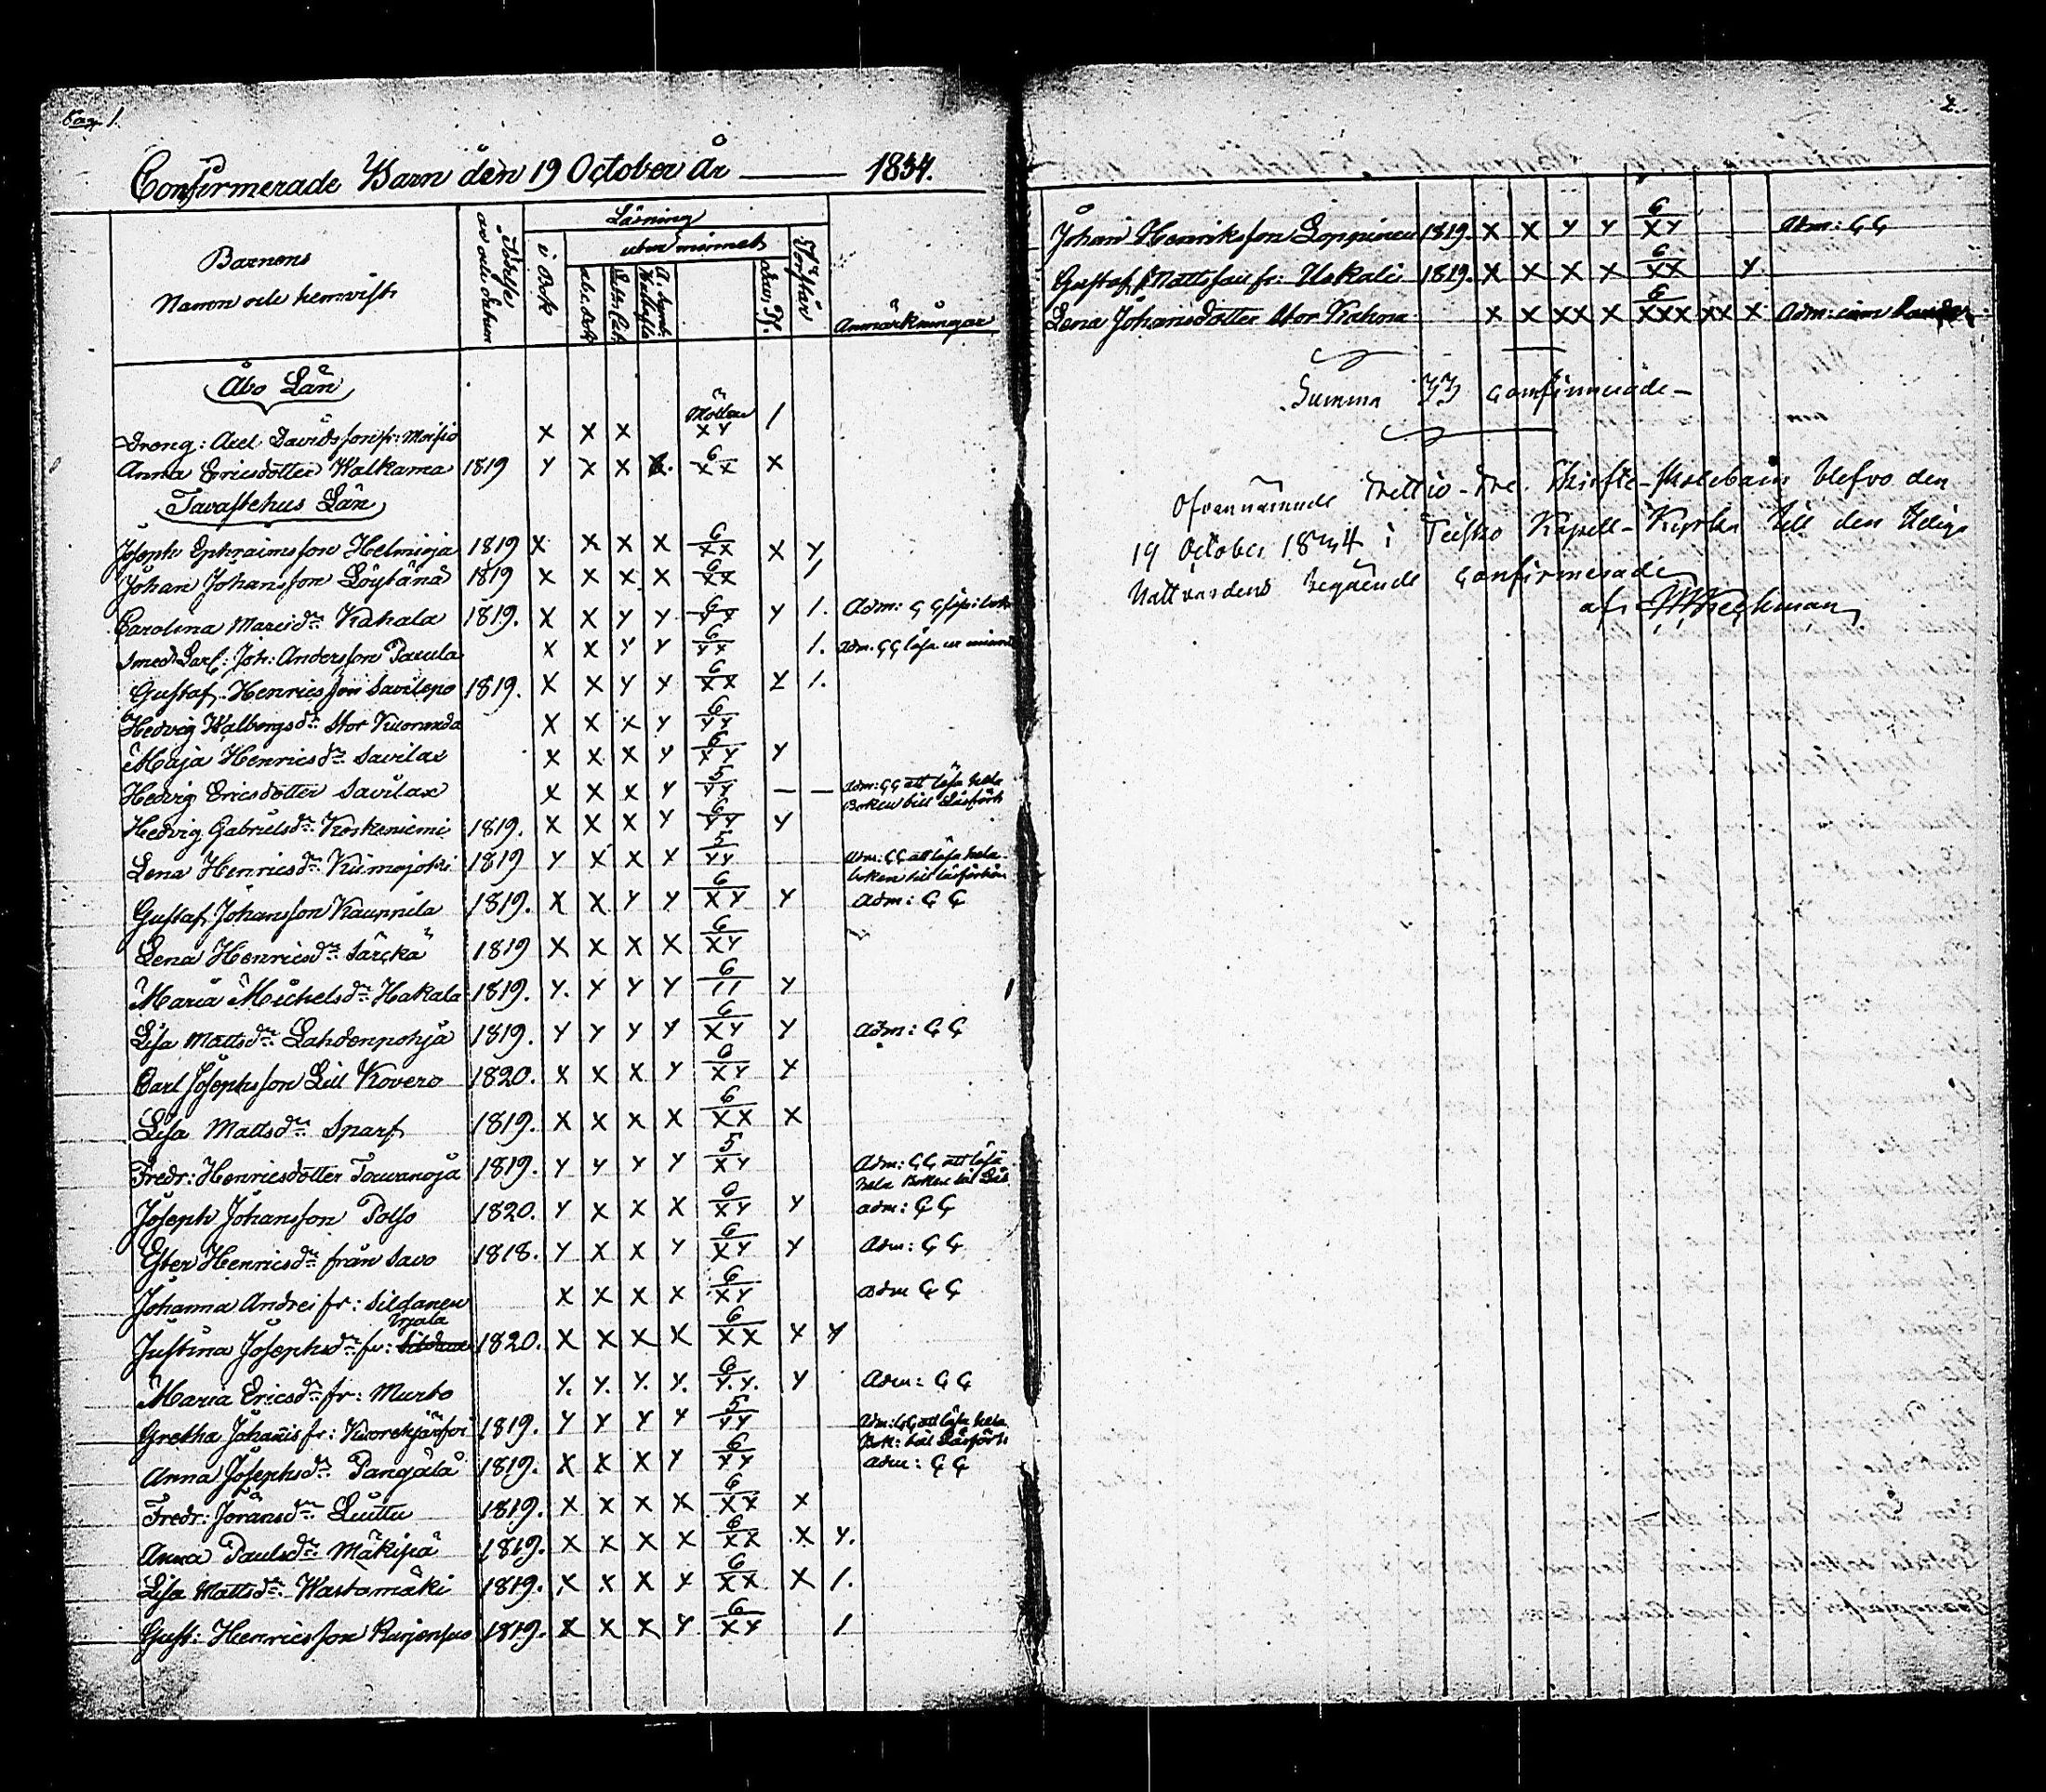 Pag 1.
Confirmerade Barn den 19 October År — 1834.
Barnens
Namn och hemvist
Födelse
år och datum
Läsning
i Bok
utan minnet
abc. bok
Luth. Cat.
Dav. Ps.
Förstår
Anmärkningar
Åbo Län
Dreng: Axel Davidsson fr: Moisio X X X XY /
Anna Ericsdotter Walkama 1819 Y X X 6 XX X
Tavastehus Län
Joseph Ephraimsson Helmioja 1819 X X X X 6 XX X Y
Johan Johansson Löytänä 1819 X X X X 6 XX /
Carolina Marci dr Kahala 1819. X X Y Y 6 YX Y 1. Adm: GG
Smed: Joh: Andersson Paxula X X Y Y 6 YY 1. Adm. GG läsa ur
Gustaf Henricsson Savilepo 1819. X X Y Y 6 XX Y 1.
Hedvig Walborgs dr Stor X X X Y 6 YY
Maja Henrics dr Savilax X X X Y 6 XY Y
Hedvig Ericsdotter Savilax X X X Y 5 YY — — Adm: GG att läsa hela
Boken till Läsförh
Hedvig Gabriels dr Koskeniemi 1819. X X X Y 6 YY Y
Lena Henrics dr Kiimajoki 1819 Y X X X 5 YY Adm: GG att läsa hela
boken till läsförhör
Gustaf Johansson Kauppila 1819. X X Y Y 6 XY Y Adm: GG
Lena Henrics dr Särckä 1819 X X X X 6 XY
Maria Michels dr Hakala 1819. Y. Y Y Y 6 11 Y
Lisa Matts dr Lahdenpohja 1819. Y Y Y Y 6 XY Y Adm: GG
Carl Josephsson Lill Kovero 1820. X X X Y 6 XY Y
Lisa Matts dr Sparf 1819. X X X X 6 XX X
Fredr: Henricsdotter 1819. Y Y Y Y 5 XY Adm: GG att läsa
hela Boken till Läs
Joseph Johansson Polso 1820. Y X X X 6 XY Y adm: GG
Ester Henrics dr från Savo 1818. Y X X Y 6 XY Y Adm: GG
Johanna Andrei fr: Sildanen X X X X 6 XY adm GG
Urjala
Justina Josephs dr fr: 1820. X X X X 6 XX Y Y
Maria Erics dr fr: Murto Y. Y. Y. Y. 6 Y.Y. Y Adm: GG
Gretha Johanis fr: Kuorekjärfvi 1819. Y Y Y Y 5 YY Adm: GG att läsa hela
Bok: till Läsförh
Anna Josephs dr Pangälä 1819. X X X Y 6 YY adm: GG
Fredr: Jörans dr Luuttu 1819. X X X X 6 XX X
Anna Pauls dr Mäkipä 1819. X X X X 6 XX X Y.
Lisa Matts dr Wastamäki 1819. X X X Y 6 XX X 1.
Gust: Henricsson 1819. X X X Y 6 XY 1
2.
Johan Henriksson Loppinen 1819. X X Y Y 6 XY Adm: GG
Gustaf Mattsson fr: Uskali 1819. X X X X 6 XX Y
Lena Johansdotter Stor Kahna X X XX X 6 XXX XX X Adm:
Summa 33 confirmerade —
Ofvannämnde Trettio-tre Skrifte-skolebarn blefvo den
19 October 1834 i Teisko Kapell-Kyrka till den Heliga
Nattvardens begående confirmerade
af